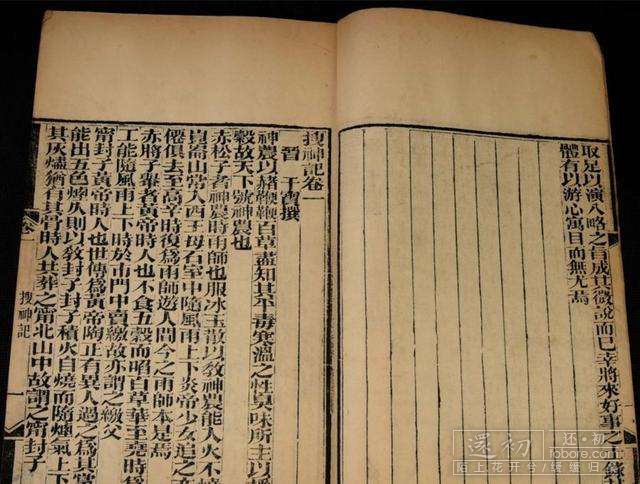 取足以演八略之旨成其微說而已幸將來好事之士錄其
體有以游心寓目而無尤焉
搜神記卷一
晉 干寶撰
神農以赭鞭鞭百草盡知其平毒寒溫之性臭味所主以播
穀故天下號神農也
赤松子者神農時雨師也服冰玉散以教神農能入火不
崑崙山常入西王母石室中隨風雨上下炎帝少女追之
僊俱去至高辛時復爲雨師遊人間今之雨師本是焉
赤將子轝者黃帝時人也不食五穀而啗百草華至堯時
工能隨風雨上下時於市門中賣繳故亦謂之繳父
甯封子黃帝時人也世傳爲黃帝陶正有異人過之爲其
能出五色煙久則以教封子封子積火自燒而隨煙氣上下
其灰燼猶有其骨時人共葬之甯北山中故謂之甯封子
卷一 搜神記
還初
还·初
fobore.com
陌上花开兮/缓缓归